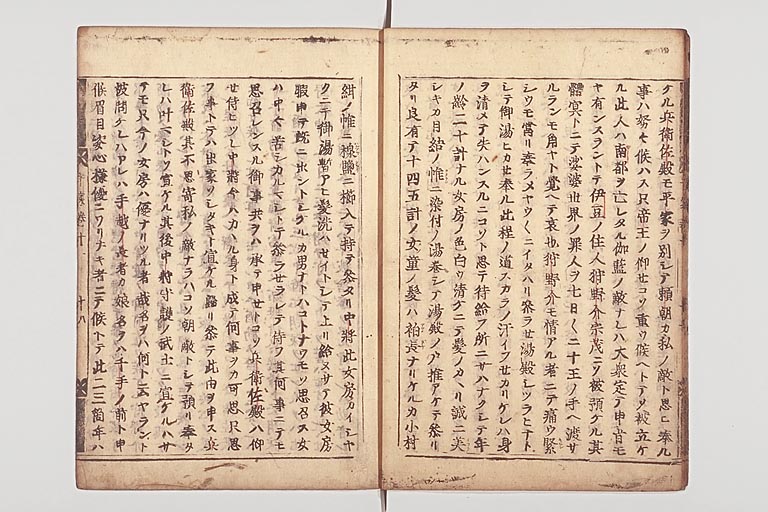 ケル兵衛佐殿モ平家ヲ別シテ頼朝カ私ノ敵ト思ヒ奉ル
事ハ努々候ハス只帝王ノ仰セコソ重ウ候ヘトテソ被立ケ
ル此人ハ南都ヲ亡シタル伽藍ノ敵ナレハ大衆定テ申旨モ
ヤ有ンスラントテ伊豆ノ住人狩野介宗茂ニソ被預ケル其
體冥トニテ娑婆世界ノ罪人ヲ七日〱ニ十王ノ手ヘ渡サ
ルランモ角ヤト覚ヘテ哀也狩野介モ情アル者ニテ痛ウ緊
シウモ當リ奉ラメヤウ〱ニイタハリ参ラせ湯殿シツラヒナト
シテ御湯ヒカせ奉ル此程ノ道スカラノ汗イフせカリケレハ身
ヲ清メテ失ハンスルニコソト思テ待給フ所ニサハナクシテ年
ノ齢二十計ナル女房ノ色白ウ清ケニテ髪ノカヽリ誠ニ美
シキカ目結ノ帷ニ染付ノ湯巻シテ湯殿ノ戸推アケテ参リ
タリ良有テ十四五計ノ女童ノ髪ハ袙長ナリケルカ小村
紺ノ帷ニ楾盥ニ櫛入テ持テ参タリ中将此女房カイシヤ
クニテ御湯暫アヒ髪洗ハせナトシテ上リ給ヌサテ彼女房
暇申テ既ニ出ントシケルカ男ナトハコトナウモソ思召ス女
ハ中々苦シカルマシトテ参ラせラレテ侍フ其何事ニテモ
思召レンスル御事共ヲハ承テ申せトコソ兵衛佐殿ハ仰
せ侍ヒツレ中将今ハカヽル身ト成テ何事ヲカ可思只思
フ事トテハ出家ソシタキト宣ケル歸リ参テ此由ヲ申ス兵
衛佐殿其不思寄私ノ敵ナラハコソ朝敵トシテ預リ奉タ
レハ叶マシトソ宣ケル其後中将守護ノ武士ニ宣ケルハサ
テモ只今ノ女房ハ優ナリツル者哉名ヲハ何ト云ヤラント
被問ケレハアレハ手越ノ長者カ娘名ヲハ千手ノ前ト申
候眉目姿心様優ニワリナキ者ニテ候トテ此二三箇年ハ